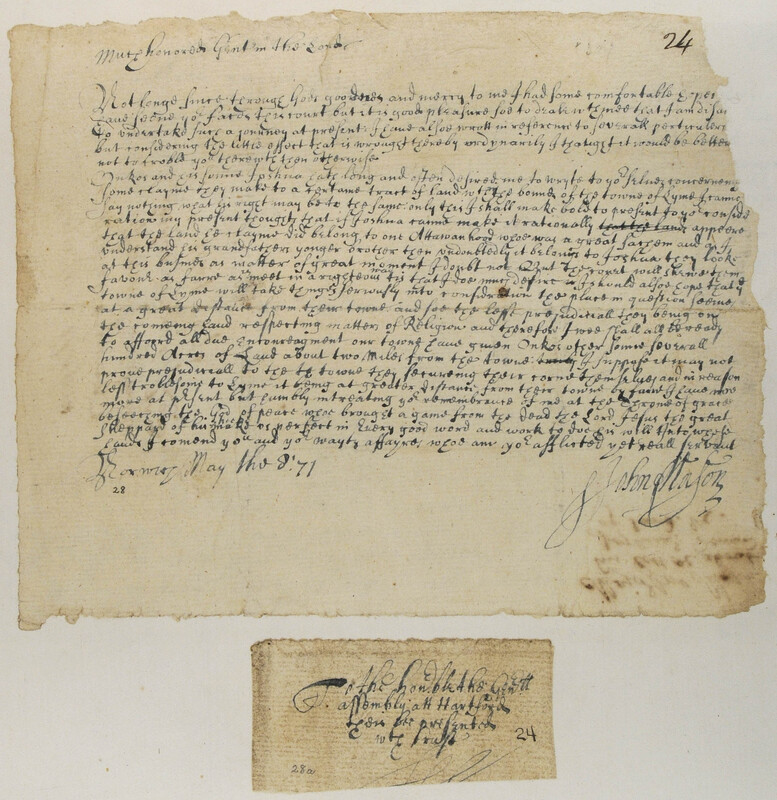 24
Much honored Gent in the Lord
Not longe since through Gods goodness and mercy to me I had some comfortable hopes
have seene yor faces this court but it is gods pleasure soe to deale wth mee that I am disa
to undertake such a journey at present I have alsoe wrott in reference to severall perticulers
but considering the little effect that is wrought thereby ordynarily I thought it would be better
not to troble yow therewth then otherwise
Unkos and his sonne Joshua hath long and often desired me to wryte to yor selves concerneng
some clayme they make to a certaine tract of land wthin the bounds of the towne of Lyme I cann
say nothing what his right may be to the same only this I shall make bold to present to yor consid
ration my present thoughts that if Joshua canne make it rationally that the land appeere
that the land he clayme did belong to one Attawanhood whoe was a great sachem and as I
understand his grandfathers yonger brother then undoubtedly it belongs to Joshua they looke
at this business as matter of great moment I doubt not But the court will shewe them
favour as farre as meet in a righteous way tis that I doe much desire I should alsoe hope that
towne of Lyme will take things seriously into consideration the place in question seeme
at a great distance from their towne and soe the less prejudiciall they being on
the comeing hand respecting matters of Religion and therefore I wee shall all be ready
to afford all due incoreagment our towne have given Onkos other some severall
hundred Acres of Land about two Miles from the towne I suppose it may not
prove prejudiciall to the towne they secureing their corne themselves and in reason
less troblesome to Lyme it being at greater distance from their towne by farre I have noe
more at present but humbly intreating yor remembrance of me at the throne of grace
beseeching the God of peace whoe brought a game from the dead the Lord Jesus the great
sheppard of his sheepe perfect in Every good word and work to doe his will Unto whose
hands I comend you and yor wayty affayres whoe am yor afflicted yet reall servant
Norwich May the 8: 71
John Mason
28
To the honble the Genrll
assembly att Hartford
then bee presented
wth trust
24
28a